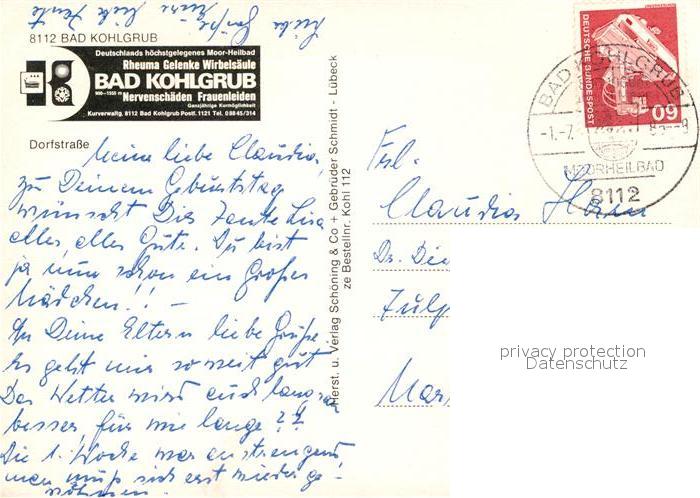 8112 BAD KOHLGRUB
Deutschlands höchstgelegenes Moor-Heilbad
Rheuma Gelenke Wirbelsäule
BAD KOHLGRUB
900-1555 m
Nervenschäden Frauenleiden
Ganzjährige Kurmöglichkeit
Kurverwaltg. 8112 Bad Kohlgrub Postf. 1121 Tel. 08845/314
Dorfstraße
Meine liebe Claudia,
zu Deinem Geburtstag
wünscht Dir Tante Lisa
alles, alles Gute. Du bist
ja nun schon ein großes
Mädchen!! –
An Deine Eltern liebe Grüße
Es geht mir soweit gut
Das Wetter wird auch langsam
besser, für wie lange??
Die 1. Woche war anstrengend
man muß sich erst wieder ge-
wöhnen.
Liebe Grüße
Tante
Herst. u. Verlag Schöning & Co + Gebrüder Schmidt - Lübeck
ze Bestellnr. Kohl 112
DEUTSCHE BUNDESPOST
60
BAD KOHLGRUB
-1.-7.
MOORHEILBAD
8112
Frl.
Claudia
Dr. Die
Zülp
Mar
privacy protection
Datenschutz